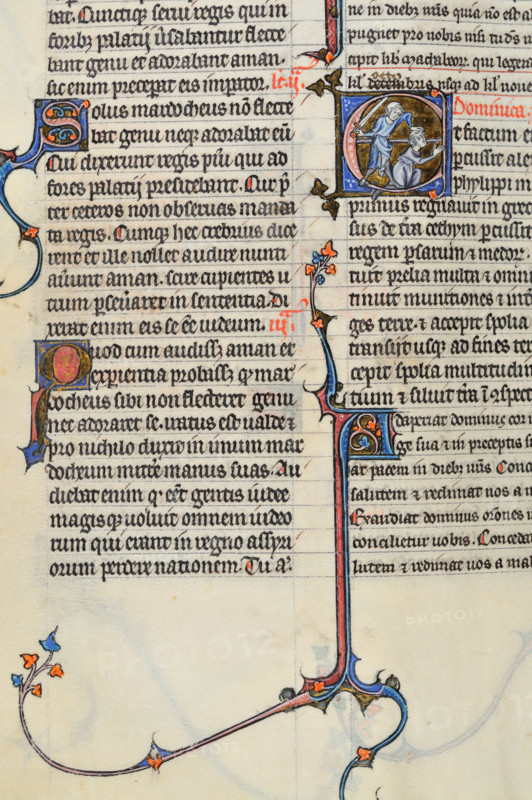 bat. Cunctiq̃ serui regis qui in
foribꝫ palatij ũsabantur flecte
bant genu et adorabant aman.
sic enim preceperat eis impator. lc̃. ij.
Solus mardocheus nõ flecte
bat genu neq̃ adorabat eũ
Cui dixerunt regis pũi qui ad
fores palatij presidebant. Cur p̃
ter ceteros non obseruas manda
ta regis. Cumq̃ hec crebrius dice
rent et ille nollet audire nunti
auũnt aman. scire cupientes u
trum pseũaret in sententia. Di
xerat enim eis se ẽe iudeum. iij.
Quod cum audissꝫ aman et
experientia probassꝫ q̃ mar
docheus sibi non flecteret genu
nec adoraret se. iratus est ualde ⁊
pro nichilo duxit in unum mar
docheum mittẽ manus suas. Au
diebat enim q̃ eẽt gentis iudee
magisq̃ uoluit omnem iudeo
rum qui erant in regno assyri
orum perdere nationem. Tu a.
ne in diebꝫ nr̃is quia nõ est
pugnet pro nobis nisi tu ds̃ n
apit lib̃ machabeoꝝ. qui legend
kl̃ decembris usq̃ ad kl̃ noue
Dominica.
Et factum e
pcussit ale
phylippi m
primus regnauit in grec
sus de tr̃a cethym pcussit
regem psarum ⁊ medoꝝ.
tuit prelia multa ⁊ omni
tinuit munitiones ⁊ int
ges terre. ⁊ accepit spolia
transijt usq̃ ad fines ter
cepit spolia multitudin
tium ⁊ siluit tr̃a ĩ ꝯspect
Adaperiat dominus cor u
ge sua ⁊ in preceptis s
at pacem in diebꝫ nr̃is Conc
salutem ⁊ redimat uos a m
Exaudiat dominus orõnes u
concilietur uobis. Conceda
lutem ⁊ redimat uos a mal
PHOTO12
PHOTO12